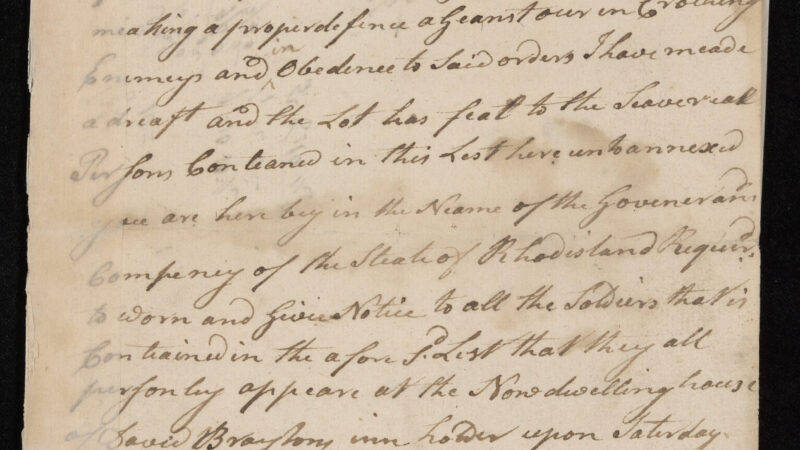 meaking a proper defence aGeanst our in Croching
Enimeys and in Obedence to Said orders I have meade
a dreaft and the Lot has feal to the Seavereall
Persons Conteaned in this Lest here unto annexed
you are here bey in the Neame of the Govener and
Compeney of the Steate of Rhodisland Requird
to worn and Give Notice to all the Soldiers that is
Contained in the afore Sd. Lest that they all
personley appeare at the Now dwelling house
of David Braytons inn holder upon Saturday